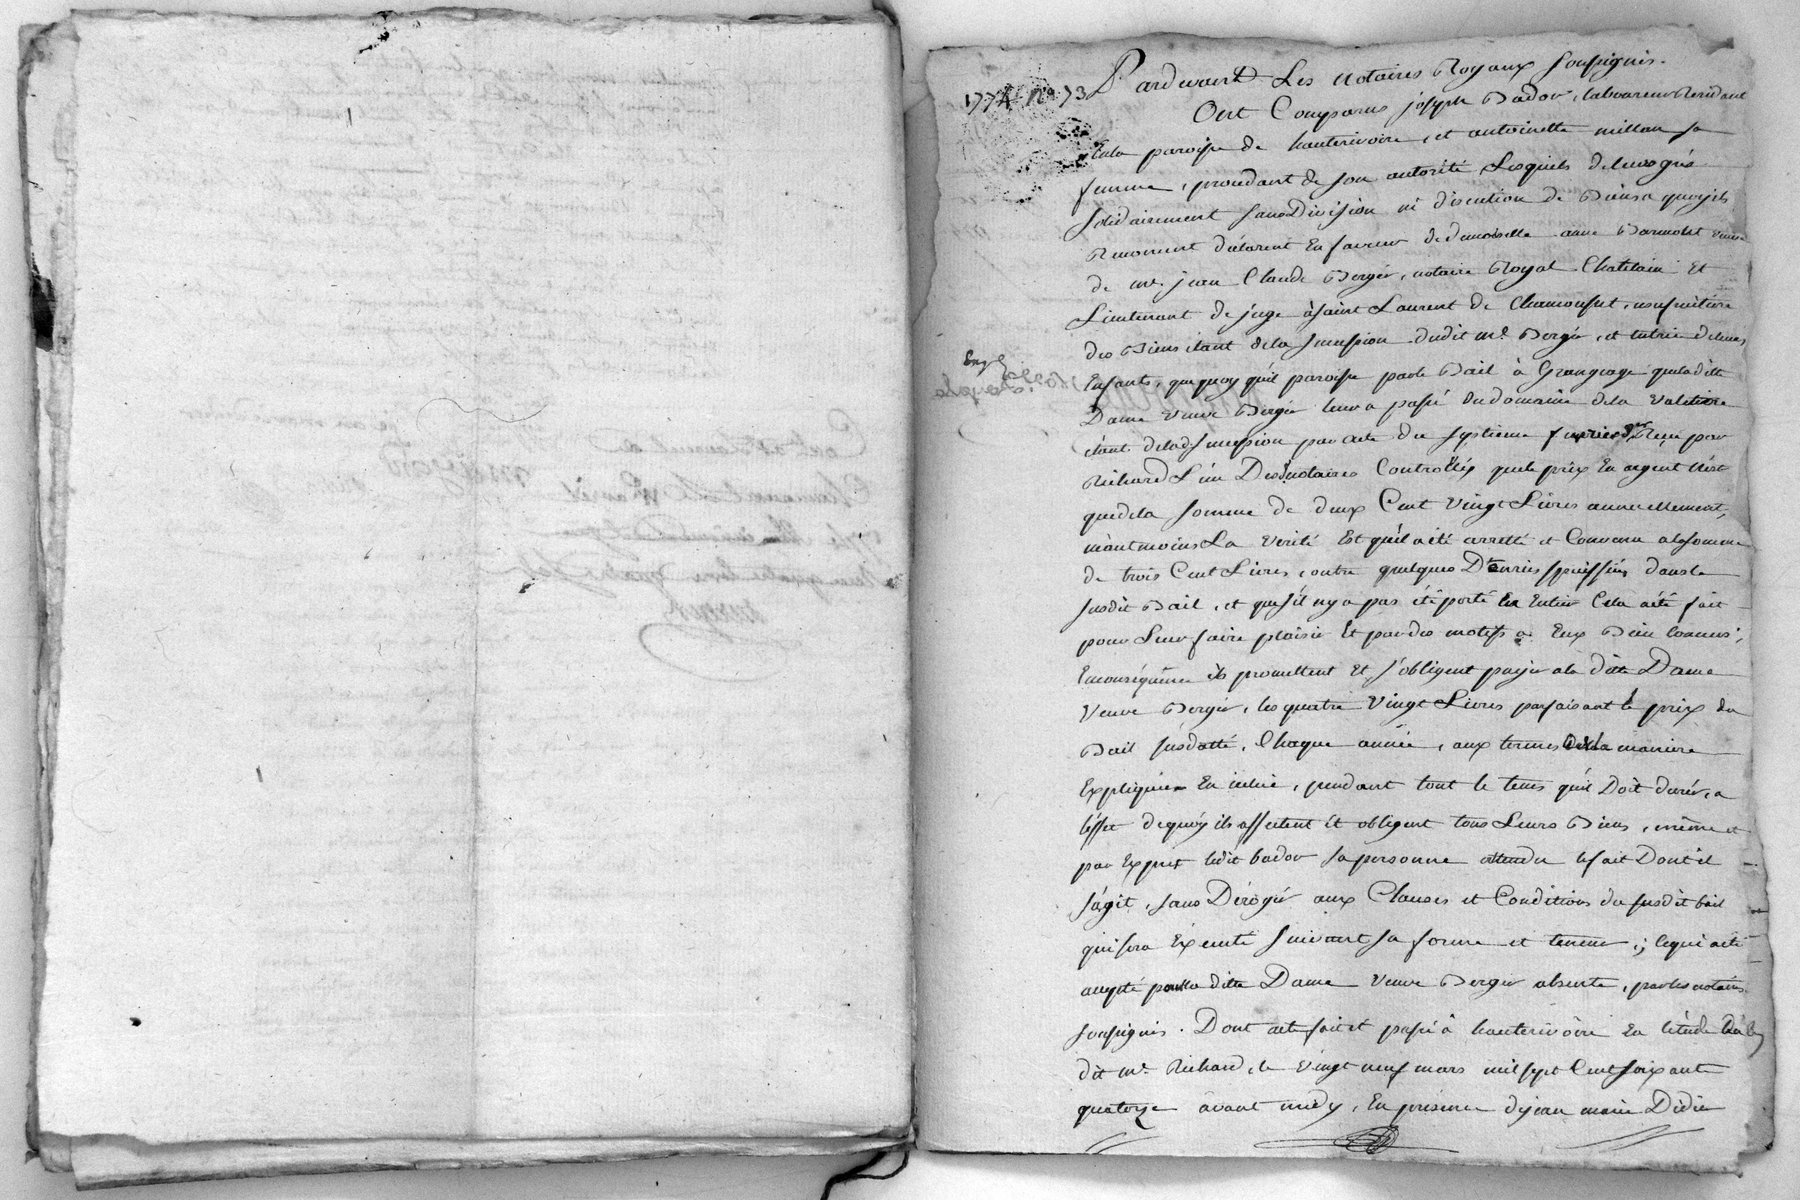 1774 N° 73
Pardevant Les notaires Royaux soussignés.
Ont Comparus joseph Bador, laboureur Residant
En la paroisse de hauterivoire, et antoinette millan sa
femme, procedant de son autorité Lesquels de leurs grés
solidairement sans Division ni discution de Biens a quoy ils
Renoncent déclarent En faveur de demoiselle anne Barmolet veuve
de me. jean Claude Bergér, notaire Royal Chatelain Et
Lieutenant de juge à saint Laurent de Chamousset, usufruitiere
des Biens étant de la succession dudit me. Bergér, et tutrice de leurs
Enfants, que quoy qu'il paroisse par le Bail à Grangeage que la ditte
Dame veuve Bergér leur a passé du domaine de la Valitiere
étant de la de. succession par acte du septieme Reçu par
Richard L'un Des notaires Controllés que le prix En argent n'est
que de la somme de deux Cent vingt Livres annuellement,
néantmoins La verité Est qu'il a été arretté et Convenu a la somme
de trois Cent Livres, outre quelques Denrées speciffiées dans le
susdit Bail, et que s'il n'y a pas été porté En Entier Cela a été fait
pour Leur faire plaisir Et par des motifs a Eux Bien Connus;
En conséquence ils promettent Et s'obligent payer a la ditte Dame
Veuve Bergér, les quatre vingt Livres parfaisant le prix du
Bail susdatté, Chaque année, aux termes de la maniere
Expliquée En icelui, pendant tout le tems qu'il Doit durér, a
l'éffet de quoy ils affectent Et obligent tous Leurs Biens, même et
par Exprès ledit bador sa personne attendu le fait Dont il
s'agit, sans Dérogér aux Clauses et Conditions du susdit bail
qui sera Exécuté suivant sa forme et teneur; ce qui a été
accepté pour la ditte Dame veuve Berger absente, par les notaires
soussignés. Dont acte fait et passé à hauterivoire En l'étude
dit me. Richard, le vingt neuf mars mil sept Cent soixante
quatorze avant midy, En présence de jean marie Didier